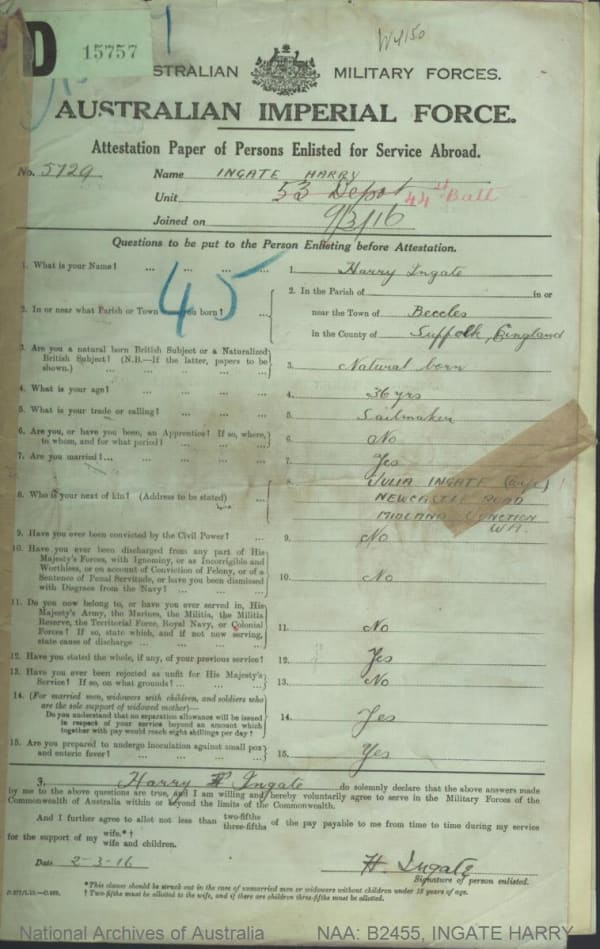 D
15757
W4150
AUSTRALIAN MILITARY FORCES.
AUSTRALIAN IMPERIAL FORCE.
Attestation Paper of Persons Enlisted for Service Abroad.
No. 5729 Name INGATE HARRY
Unit 53 Depot 44th Batt
Joined on 9/3/16
Questions to be put to the Person Enlisting before Attestation.
45
1. What is your Name? ... ... ... ... 1. Harry Ingate
2. In or near what Parish or Town you born? ... 2. In the Parish of in or
near the Town of Beccles
in the County of Suffolk, England
3. Are you a natural born British Subject or a Naturalized
British Subject? (N.B.—If the latter, papers to be
shown.) ... ... ... ... 3. Natural born
4. What is your age? ... ... ... ... 4. 36 yrs
5. What is your trade or calling? ... ... ... 5. Sailmaker
6. Are you, or have you been, an Apprentice? If so, where,
to whom, and for what period? ... ... ... 6. No
7. Are you married?... ... ... ... ... 7. Yes
8. Who is your next of kin? (Address to be stated) 8. JULIA INGATE (wife)
NEWCASTLE ROAD
MIDLAND JUNCTION
WA.
9. Have you ever been convicted by the Civil Power? ... 9. No
10. Have you ever been discharged from any part of His
Majesty's Forces, with Ignominy, or as Incorrigible and
Worthless, or on account of Conviction of Felony, or of a
Sentence of Penal Servitude, or have you been dismissed
with Disgrace from the Navy? ... ... ... 10. No
11. Do you now belong to, or have you ever served in, His
Majesty's Army, the Marines, the Militia, the Militia
Reserve, the Territorial Force, Royal Navy, or Colonial
Forces? If so, state which, and if not now serving,
state cause of discharge ... ... ... 11. No
12. Have you stated the whole, if any, of your previous service? 12. Yes
13. Have you ever been rejected as unfit for His Majesty's
Service? If so, on what grounds? ... ... ... 13. No
14. (For married men, widowers with children, and soldiers who
are the sole support of widowed mother)—
Do you understand that no separation allowance will be issued
in respect of your service beyond an amount which
together with pay would reach eight shillings per day? 14. Yes
15. Are you prepared to undergo inoculation against small pox
and enteric fever? ... ... ... ... 15. Yes
I, Harry Ingate do solemnly declare that the above answers made
by me to the above questions are true, and I am willing and hereby voluntarily agree to serve in the Military Forces of the
Commonwealth of Australia within or beyond the limits of the Commonwealth.
And I further agree to allot not less than two-fifths three-fifths of the pay payable to me from time to time during my service
for the support of my wife.*† wife and children.
Date 2-3-16 H. Ingate
Signature of person enlisted.
*This clause should be struck out in the case of unmarried men or widowers without children under 18 years of age.
† Two-fifths must be allotted to the wife, and if there are children three-fifths must be allotted.
National Archives of Australia NAA: B2455, INGATE HARRY